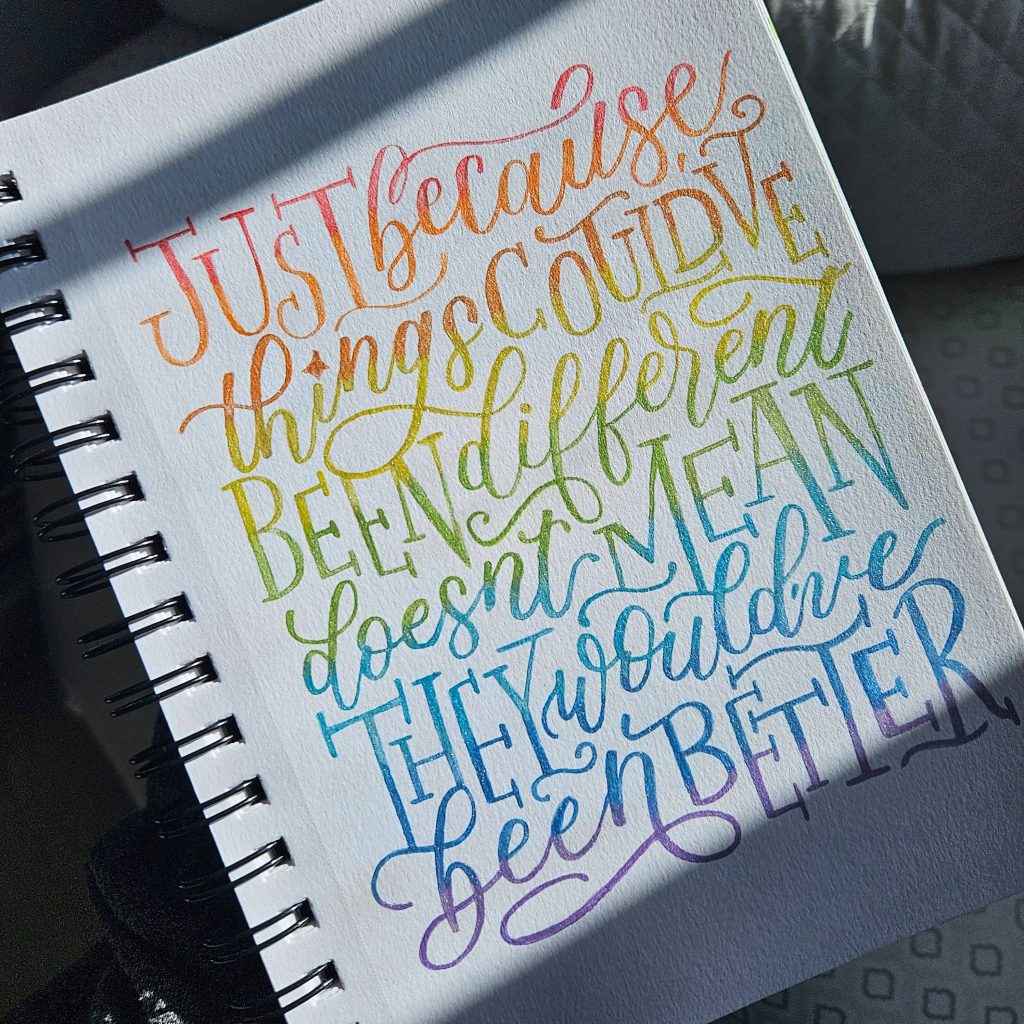 JUST because,
things COULDVE
BEEN different
doesnt MEAN
THEY wouldve
been BETTER